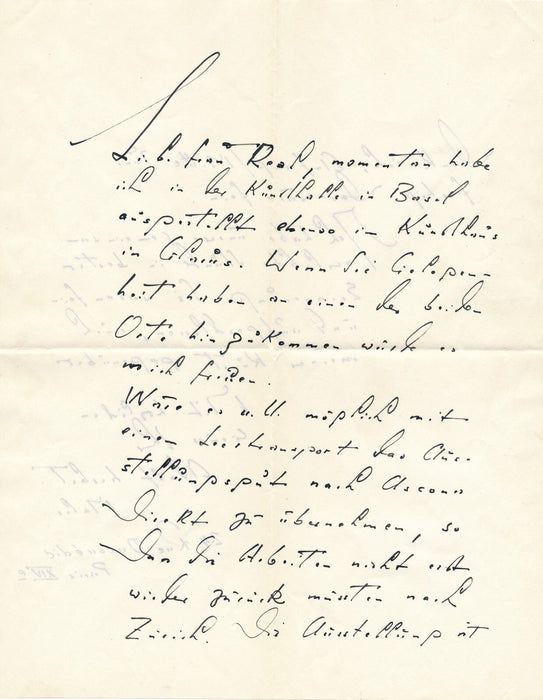 Liebe Frau Real, momentan habe
ich in der Kunsthalle in Basel
ausgestellt ebenso im Kunsthaus
in Glarus. Wenn Sie Gelegen-
heit haben an einen der beiden
Orte hinzukommen würde es
mich freuen.
Wäre es u. U. möglich mit
einem Leertransport das Aus-
stellungsgut nach Ascona
direkt zu übernehmen, so
dass die Arbeiten nicht erst
wieder zurück müssten nach
Zürich. Die Ausstellung ist
Paris XIVe